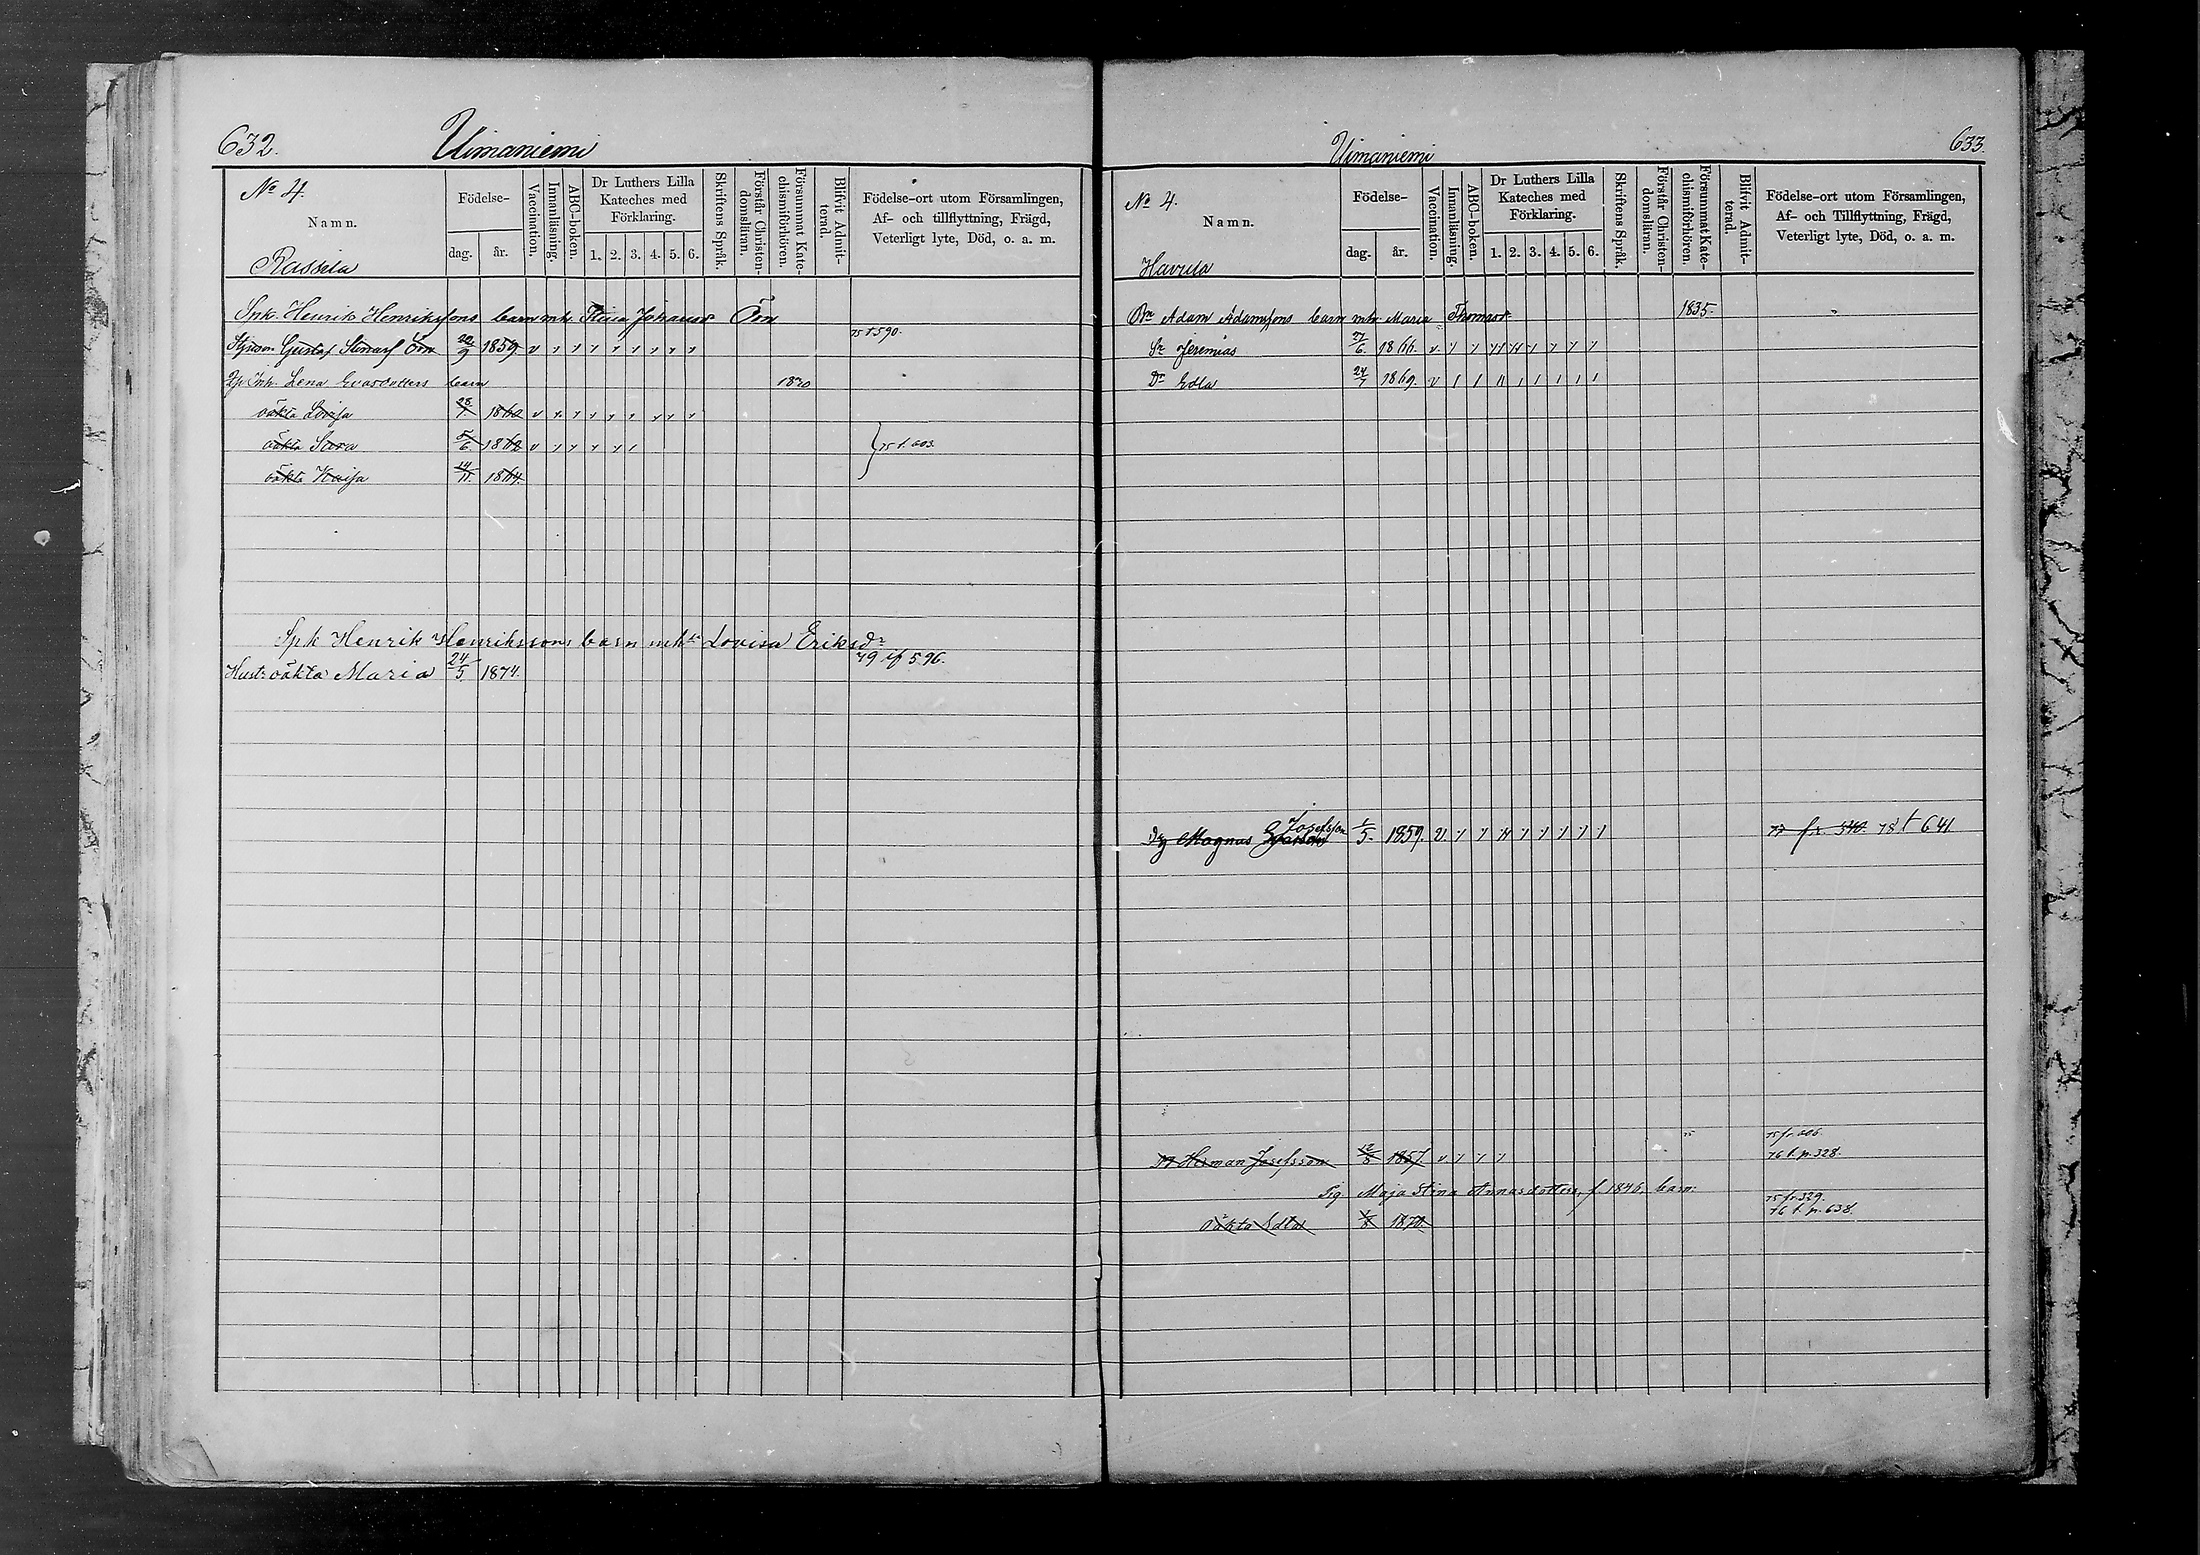 632.
Uimaniemi
No 4.
Namn.
Rassila
Födelse-
dag.
år.
Vaccination.
Innanläsning.
ABC-boken.
Dr Luthers Lilla
Kateches med
Förklaring.
1. 2. 3. 4. 5. 6.
Skriftens Språk.
Förstår Christen-
domsläran.
Försummat Kate-
chismiförhören.
Blifvit Admit-
terad.
Födelse-ort utom Församlingen,
Af- och tillflyttning, Frägd,
Veterligt lyte, Död, o. a. m.
Henrik Henrikssons barn m h Stina Johansd Örn
Gustaf Örn 20/9 1859 v 75 t 590.
Lena Evasdotters barn 1830
oäkta Lovisa 28/1. 1860 v
oäkta Sara 5/6. 1862 v 75 t. 603.
oäkta Kaisa 14/11. 1864.
Spk Henrik Henrikssons barn m h Lovisa Eriksdr
oäkta Maria 24/5. 1874. 79 if 596.
Uimaniemi
633.
No 4.
Namn.
Havula
Födelse-
dag.
år.
Vaccination.
Innanläsning.
ABC-boken.
Dr Luthers Lilla
Kateches med
Förklaring.
1. 2. 3. 4. 5. 6.
Skriftens Språk.
Förstår Christen-
domsläran.
Försummat Kate-
chismiförhören.
Blifvit Admit-
terad.
Födelse-ort utom Församlingen,
Af- och Tillflyttning, Frägd,
Veterligt lyte, Död, o. a. m.
Adam Adamssons barn m h Maria Thomasd 1835.
Sn Jeremias 27/6. 1866. v.
Dr Edla 24/7 1869. v
Josefsson
Dg Magnus 1/5. 1859. v. 77 fr. 540. 78 t 641
75 fr. 606.
Herman Josefsson 12/8 1857 v. 76 t. p. 328.
Pig Maja Stina Annasdotters, f. 1846, barn:
75 fr. 329.
oäkta Edla 1/8 1870. 76 t. p. 638.